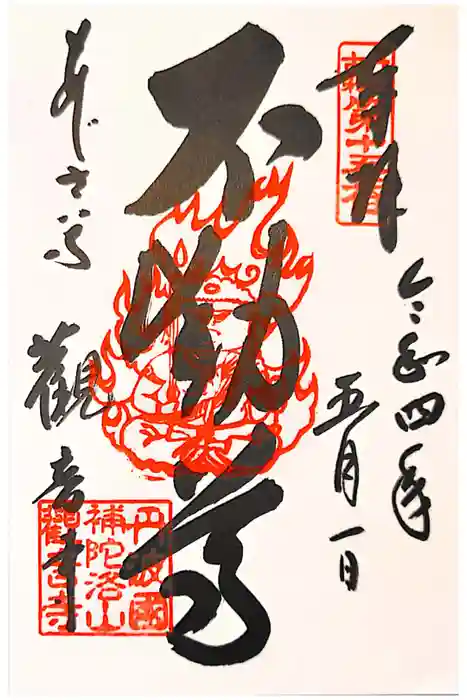 奉拝
令和四年
五月一日
不動尊
あじさい寺
觀音寺
丹波國
補陀洛山
觀音寺